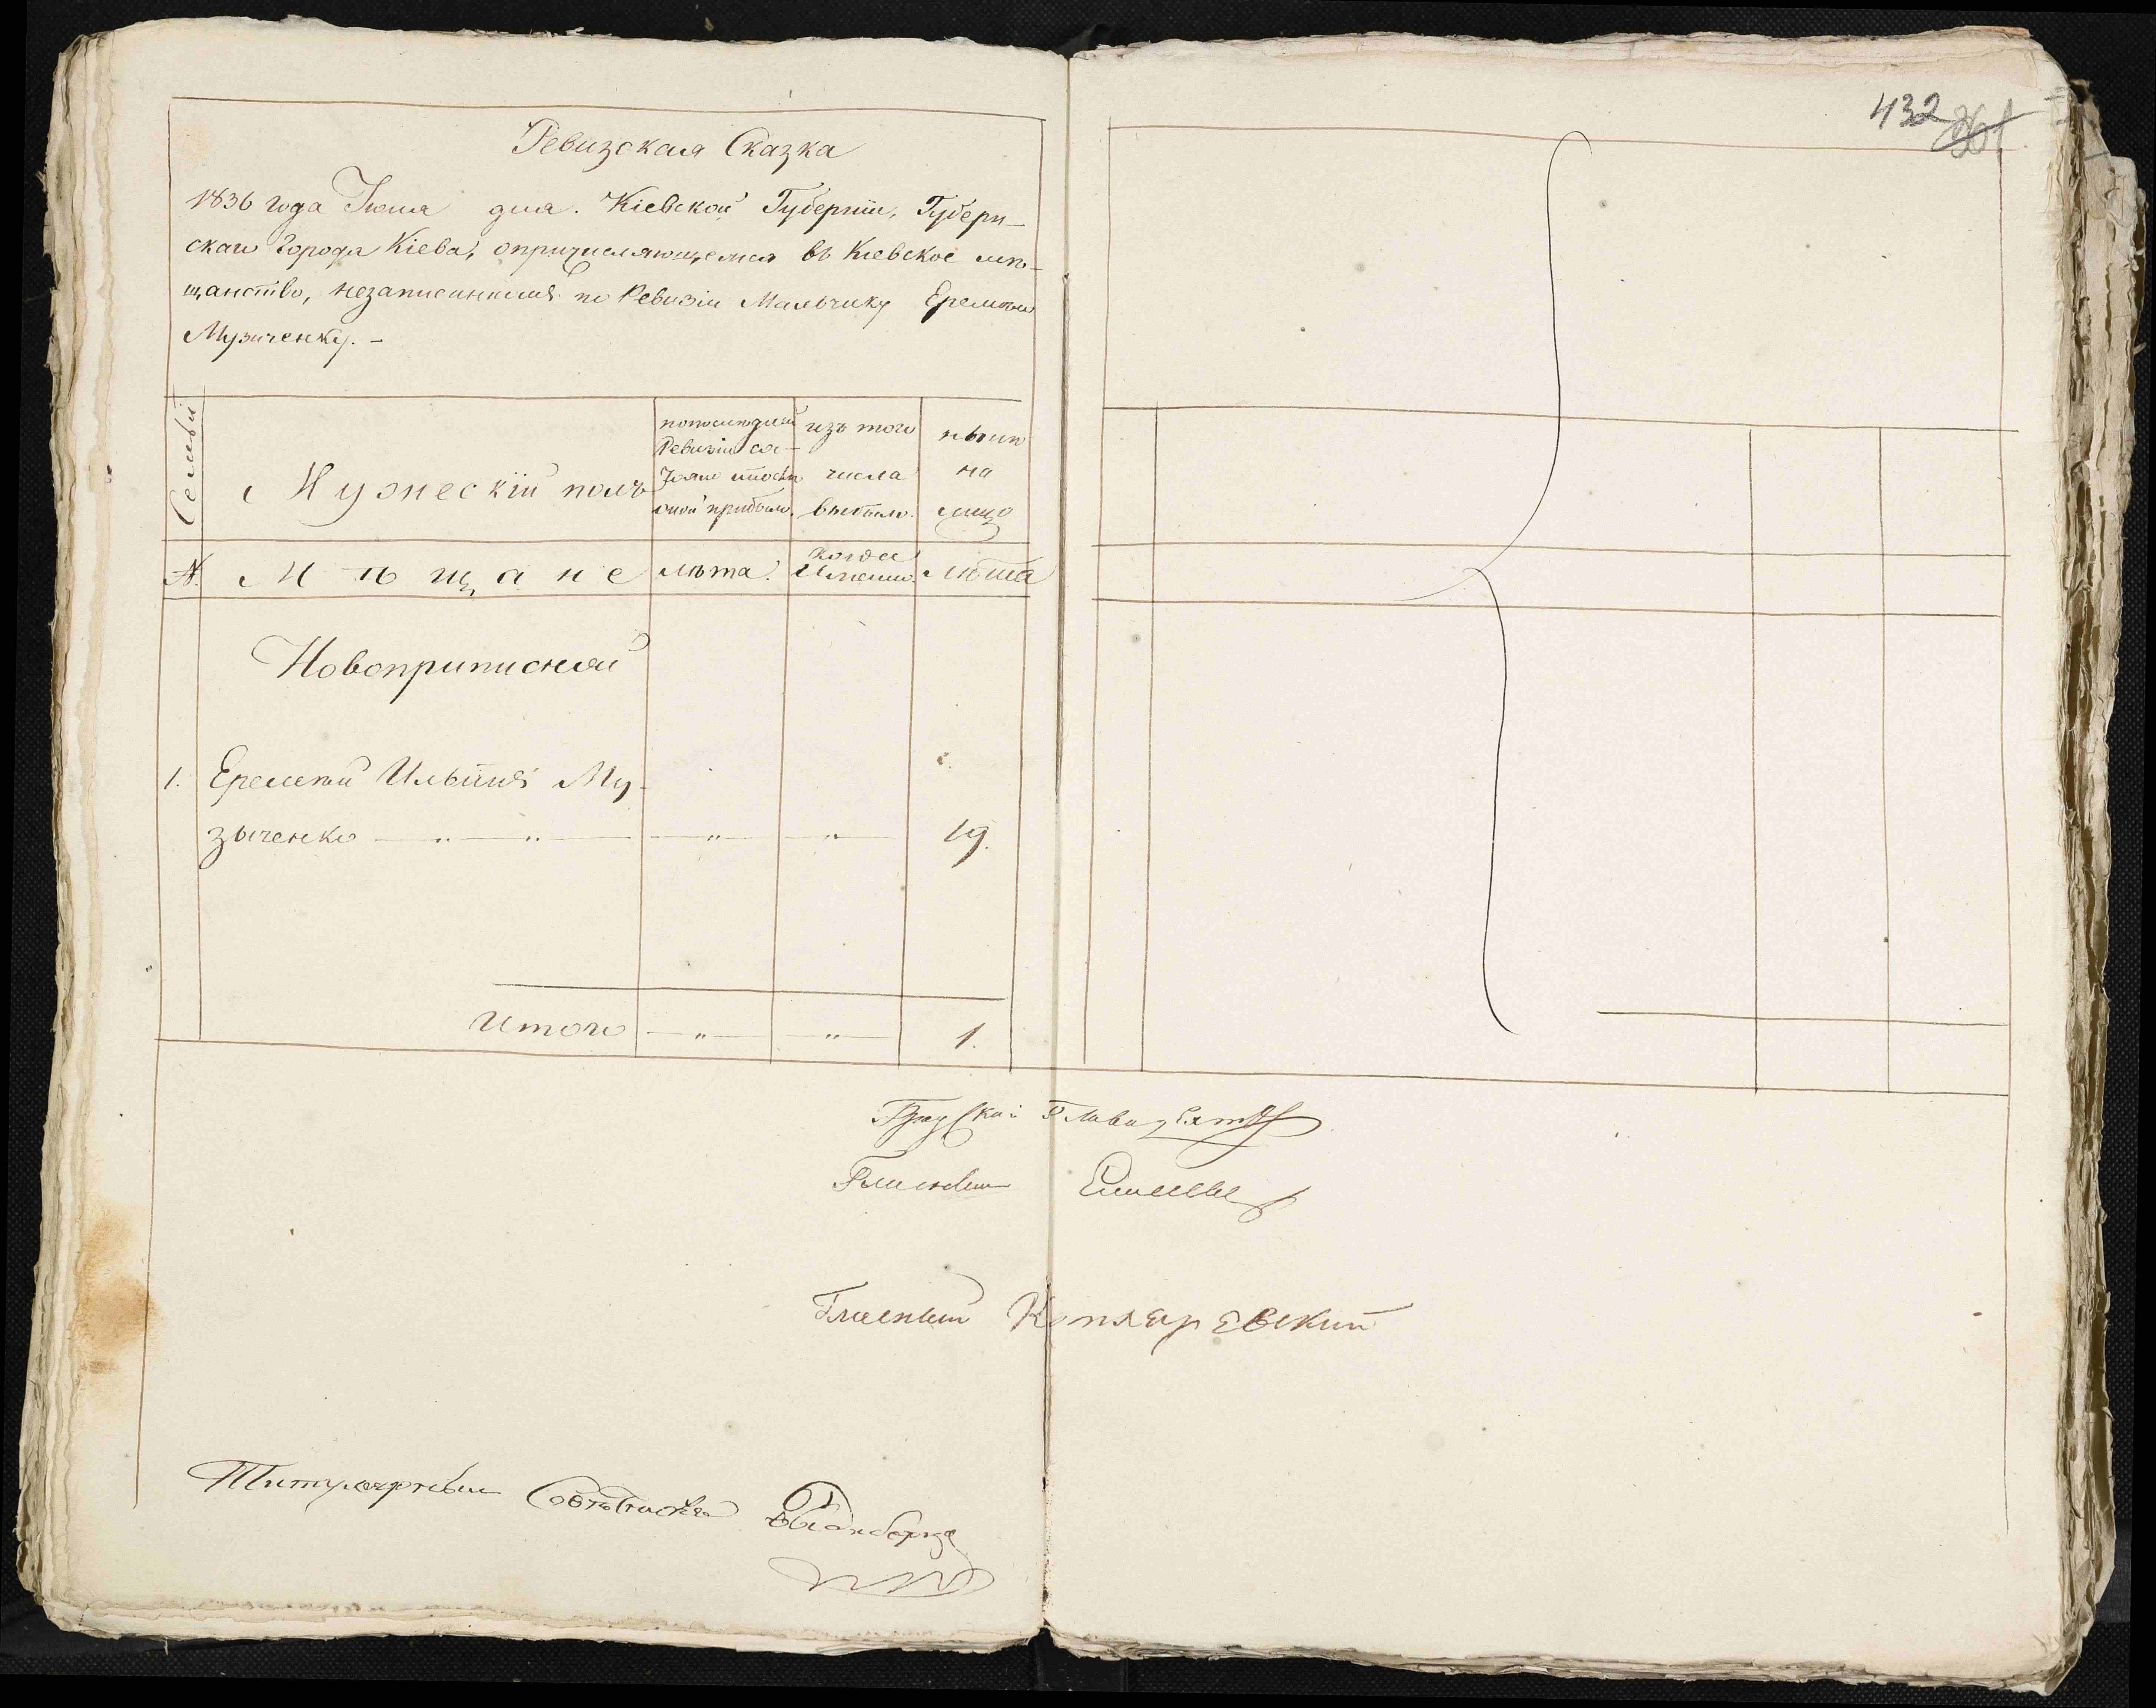 432
Ревизская Сказка
1836 года Июня дня. Кіевской Губерніи, Губерн-
скаго Города Кіева, опричисляющемся въ Кіевское мѣ-
щанство, незаписанномъ по Ревизіи Мальчику Еремѣю
Музиченку. -
Семьи
Мужескій полъ
по последней
Ревизіи со-
стояло и после
оной прибыло.
изъ того
числа
выбыло.
нынѣ
на
лицо
№.
Мѣщане
лѣта.
Когда
Именно.
лѣта
Новоприписной
1. Еремѣй Ильинъ Му-
зыченко — „ — „ — — „ — — „ — 19.
Итого — „ — — „ — 1.
Градской Глава
Гласный
Гласный Котляревский
Титулярный Советникъ